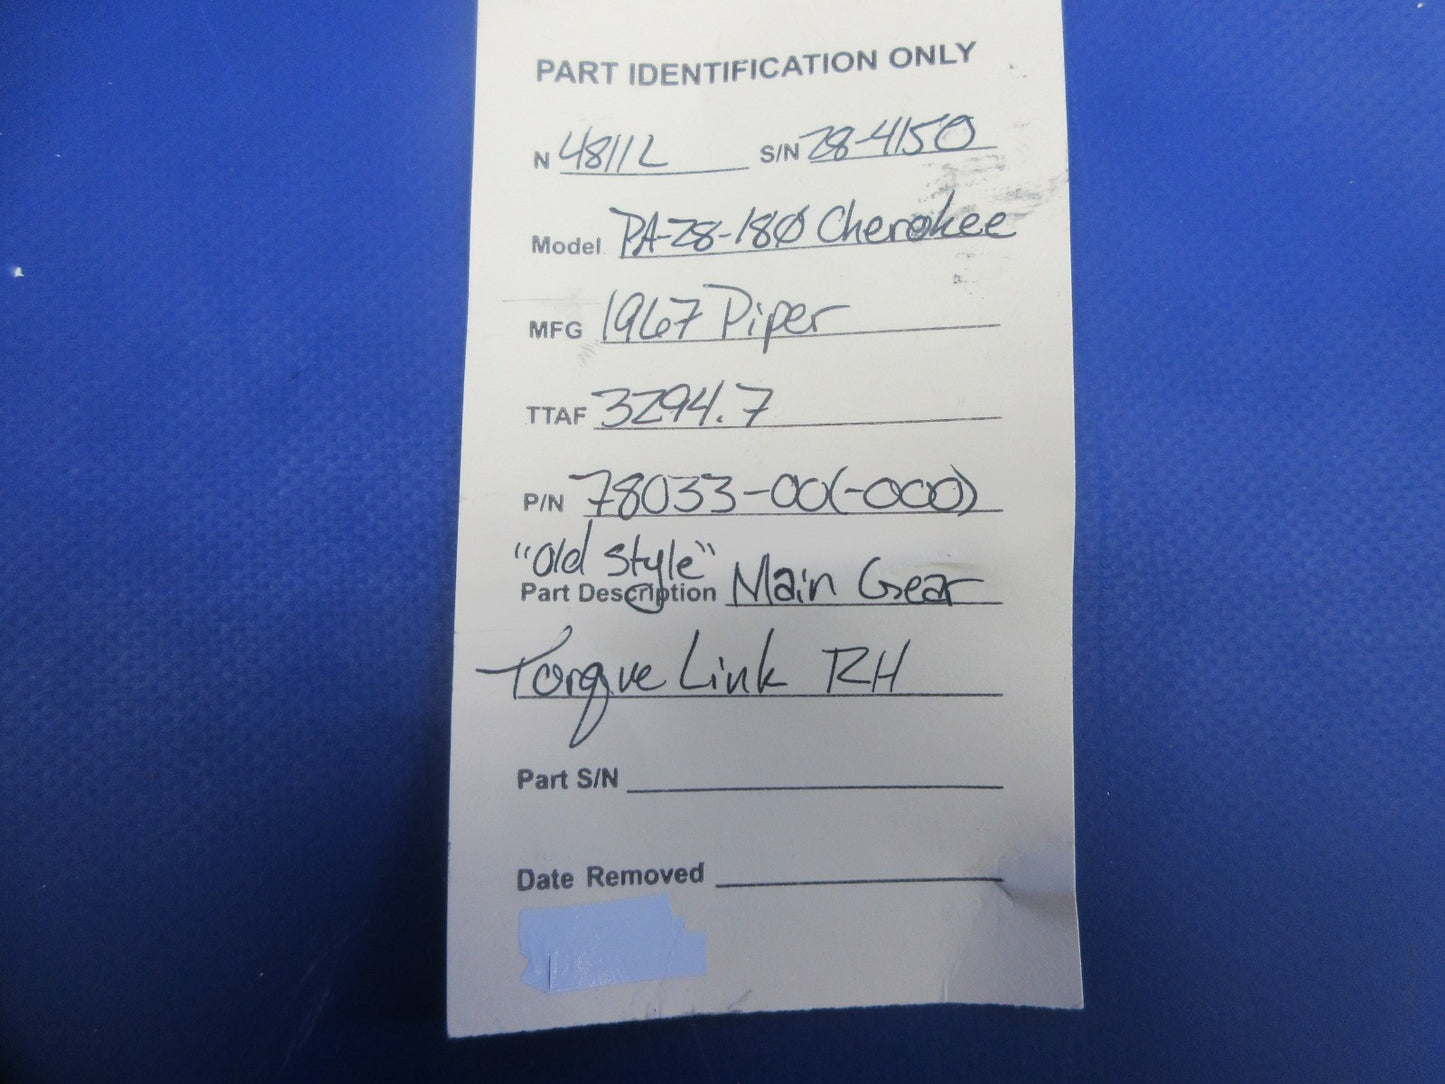 PART IDENTIFICATION ONLY
N 4811L S/N 28-4150
Model PA-28-180 Cherokee
MFG 1967 Piper
TTAF 3294.7
P/N 78033-00(-000)
"Old Style"
Part Description Main Gear
Torque Link RH
Part S/N
Date Removed